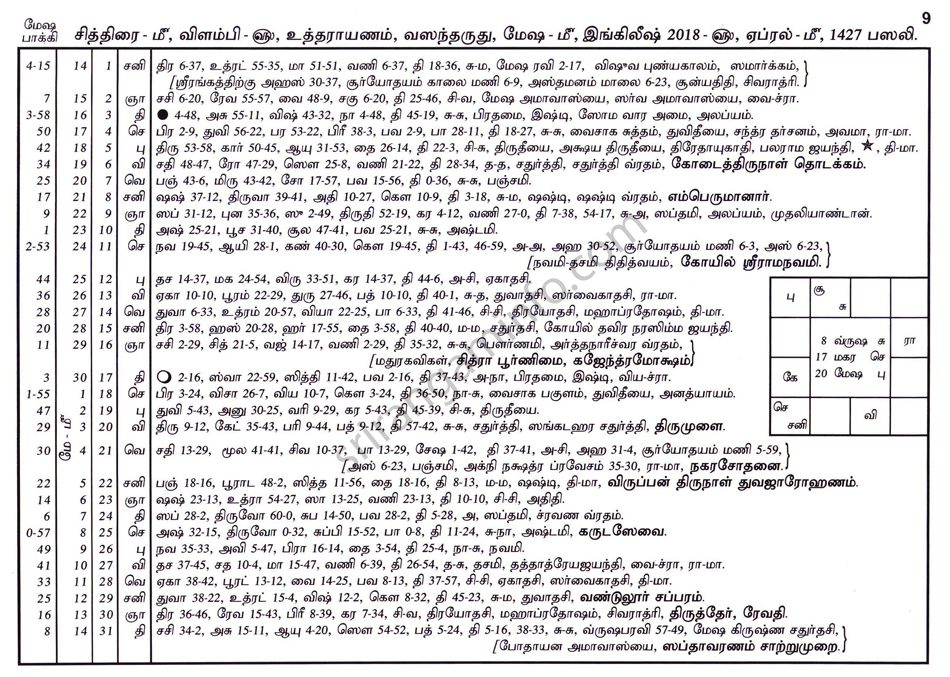 9
மேஷ பாக்கி
சித்திரை - மீ, விளம்பி - ௵, உத்தராயணம், வஸந்தருது, மேஷ - மீ, இங்கிலீஷ் 2018 - ௵, ஏப்ரல் - மீ, 1427 பஸலி.
4-15 14 1 சனி திர 6-37, உத்ரட் 55-35, மா 51-51, வணி 6-37, தி 18-36, சு-ம, மேஷ ரவி 2-17, விஷுவ புண்யகாலம், ஸமார்க்கம்,
[ஸ்ரீரங்கத்திற்கு அஹஸ் 30-37, சூர்யோதயம் காலை மணி 6-9, அஸ்தமனம் மாலை 6-23, சூன்யதிதி, சிவராத்ரி.
7 15 2 ஞா சசி 6-20, ரேவ 55-57, வை 48-9, சகு 6-20, தி 25-46, சி-வ, மேஷ அமாவாஸ்யை, ஸர்வ அமாவாஸ்யை, வை-ச்ரா.
3-58 16 3 தி ● 4-48, அசு 55-11, விஷ் 43-32, நா 4-48, தி 45-19, சு-சு, பிரதமை, இஷ்டி, ஸோம வார அமை, அலப்யம்.
50 17 4 செ பிர 2-9, துவி 56-22, பர 53-22, பிரீ 38-3, பவ 2-9, பா 28-11, தி 18-27, சு-சு, வைசாக சுத்தம், துவிதீயை, சந்த்ர தர்சனம், அவமா, ரா-மா.
42 18 5 பு திரு 53-58, கார் 50-45, ஆயு 31-53, தை 26-14, தி 22-3, சி-சு, திருதீயை, அக்ஷய திருதீயை, திரேதாயுகாதி, பலராம ஜயந்தி, ★, தி-மா.
34 19 6 வி சதி 48-47, ரோ 47-29, ஸௌ 25-8, வணி 21-22, தி 28-34, த-த, சதுர்த்தி, சதுர்த்தி வ்ரதம், கோடைத்திருநாள் தொடக்கம்.
25 20 7 வெ பஞ் 43-6, மிரு 43-42, சோ 17-57, பவ 15-56, தி 0-36, சு-சு, பஞ்சமி.
17 21 8 சனி ஷஷ் 37-12, திருவா 39-41, அதி 10-27, கௌ 10-9, தி 3-18, சு-ம, ஷஷ்டி, ஷஷ்டி வ்ரதம், எம்பெருமானார்.
9 22 9 ஞா ஸப் 31-12, புன 35-36, ஸு 2-49, திருதி 52-19, கர 4-12, வணி 27-0, தி 7-38, 54-17, சு-அ, ஸப்தமி, அலப்யம், முதலியாண்டான்.
1 23 10 தி அஷ் 25-21, பூச 31-40, சூல 47-41, பவ 25-21, சு-சு, அஷ்டமி.
2-53 24 11 செ நவ 19-45, ஆயி 28-1, கண் 40-30, கௌ 19-45, தி 1-43, 46-59, அ-அ, அஹ 30-52, சூர்யோதயம் மணி 6-3, அஸ் 6-23,
[நவமி-தசமி திதித்வயம், கோயில் ஸ்ரீராமநவமி.
44 25 12 பு தச 14-37, மக 24-54, விரு 33-51, கர 14-37, தி 44-6, அ-சி, ஏகாதசி.
36 26 13 வி ஏகா 10-10, பூரம் 22-29, துரு 27-46, பத் 10-10, தி 40-1, சு-த, துவாதசி, ஸர்வைகாதசி, ரா-மா.
28 27 14 வெ துவா 6-33, உத்ரம் 20-57, வியா 22-25, பா 6-33, தி 41-46, சி-சி, திரயோதசி, மஹாப்ரதோஷம், தி-மா.
20 28 15 சனி திர 3-58, ஹஸ் 20-28, ஹர் 17-55, தை 3-58, தி 40-40, ம-ம, சதுர்தசி, கோயில் தவிர நரஸிம்ம ஜயந்தி.
11 29 16 ஞா சசி 2-29, சித் 21-5, வஜ் 14-17, வணி 2-29, தி 35-32, சு-சு, பௌர்ணமி, அர்த்தநாரீச்வர வ்ரதம்,
[மதுரகவிகள், சித்ரா பூர்ணிமை, கஜேந்த்ரமோக்ஷம்
3 30 17 தி ○ 2-16, ஸ்வா 22-59, ஸித்தி 11-42, பவ 2-16, தி 37-43, அ-நா, பிரதமை, இஷ்டி, விய-ச்ரா.
1-55 மே - மீ 1 18 செ பிர 3-24, விசா 26-7, விய 10-7, கௌ 3-24, தி 36-50, நா-சு, வைசாக பகுளம், துவிதீயை, அனத்யாயம்.
47 2 19 பு துவி 5-43, அனு 30-25, வரி 9-29, கர 5-43, தி 45-39, சி-சு, திருதீயை.
29 3 20 வி திரு 9-12, கேட் 35-43, பரி 9-44, பத் 9-12, தி 57-42, சு-சு, சதுர்த்தி, ஸங்கடஹர சதுர்த்தி, திருமுளை.
30 4 21 வெ சதி 13-29, மூல 41-41, சிவ 10-37, பா 13-29, சேஷ 1-42, தி 37-41, அ-சி, அஹ 31-4, சூர்யோதயம் மணி 5-59,
[அஸ் 6-23, பஞ்சமி, அக்னி நக்ஷத்ர ப்ரவேசம் 35-30, ரா-மா, நகரசோதனை.
22 5 22 சனி பஞ் 18-16, பூராட 48-2, ஸித்த 11-56, தை 18-16, தி 8-13, ம-ம, ஷஷ்டி, தி-மா, விருப்பன் திருநாள் துவஜாரோஹணம்.
14 6 23 ஞா ஷஷ் 23-13, உத்ரா 54-27, ஸா 13-25, வணி 23-13, தி 10-10, சி-சி, அதிதி.
6 7 24 தி ஸப் 28-2, திருவோ 60-0, சுப 14-50, பவ 28-2, தி 5-28, அ, ஸப்தமி, ச்ரவண வ்ரதம்.
0-57 8 25 செ அஷ் 32-15, திருவோ 0-32, சுப்பி 15-52, பா 0-8, தி 11-24, சு-நா, அஷ்டமி, கருடஸேவை.
49 9 26 பு நவ 35-33, அவி 5-47, பிரா 16-14, தை 3-54, தி 25-4, நா-சு, நவமி.
41 10 27 வி தச 37-45, சத 10-4, மா 15-47, வணி 6-39, தி 26-54, த-சு, தசமி, தத்தாத்ரேயஜயந்தி, வை-ச்ரா, ரா-மா.
33 11 28 வெ ஏகா 38-42, பூரட் 13-12, வை 14-25, பவ 8-13, தி 37-57, சி-சி, ஏகாதசி, ஸர்வைகாதசி, தி-மா.
25 12 29 சனி துவா 38-22, உத்ரட் 15-4, விஷ் 12-2, கௌ 8-32, தி 45-23, சு-ம, துவாதசி, வண்டுலூர் சப்பரம்.
16 13 30 ஞா திர 36-46, ரேவ 15-43, பிரீ 8-39, கர 7-34, சி-வ, திரயோதசி, மஹாப்ரதோஷம், சிவராத்ரி, திருத்தேர், ரேவதி.
8 14 31 தி சசி 34-2, அசு 15-11, ஆயு 4-20, ஸௌ 54-52, பத் 5-24, தி 5-16, 38-33, சு-சு, வ்ருஷபரவி 57-49, மேஷ கிருஷ்ண சதுர்தசி,
[போதாயன அமாவாஸ்யை, ஸப்தாவரணம் சாற்றுமுறை.
பு சூ சு
8 வ்ருஷ சு ரா
17 மகர செ
கே 20 மேஷ பு
செ சனி வி
srirangaminfo.com